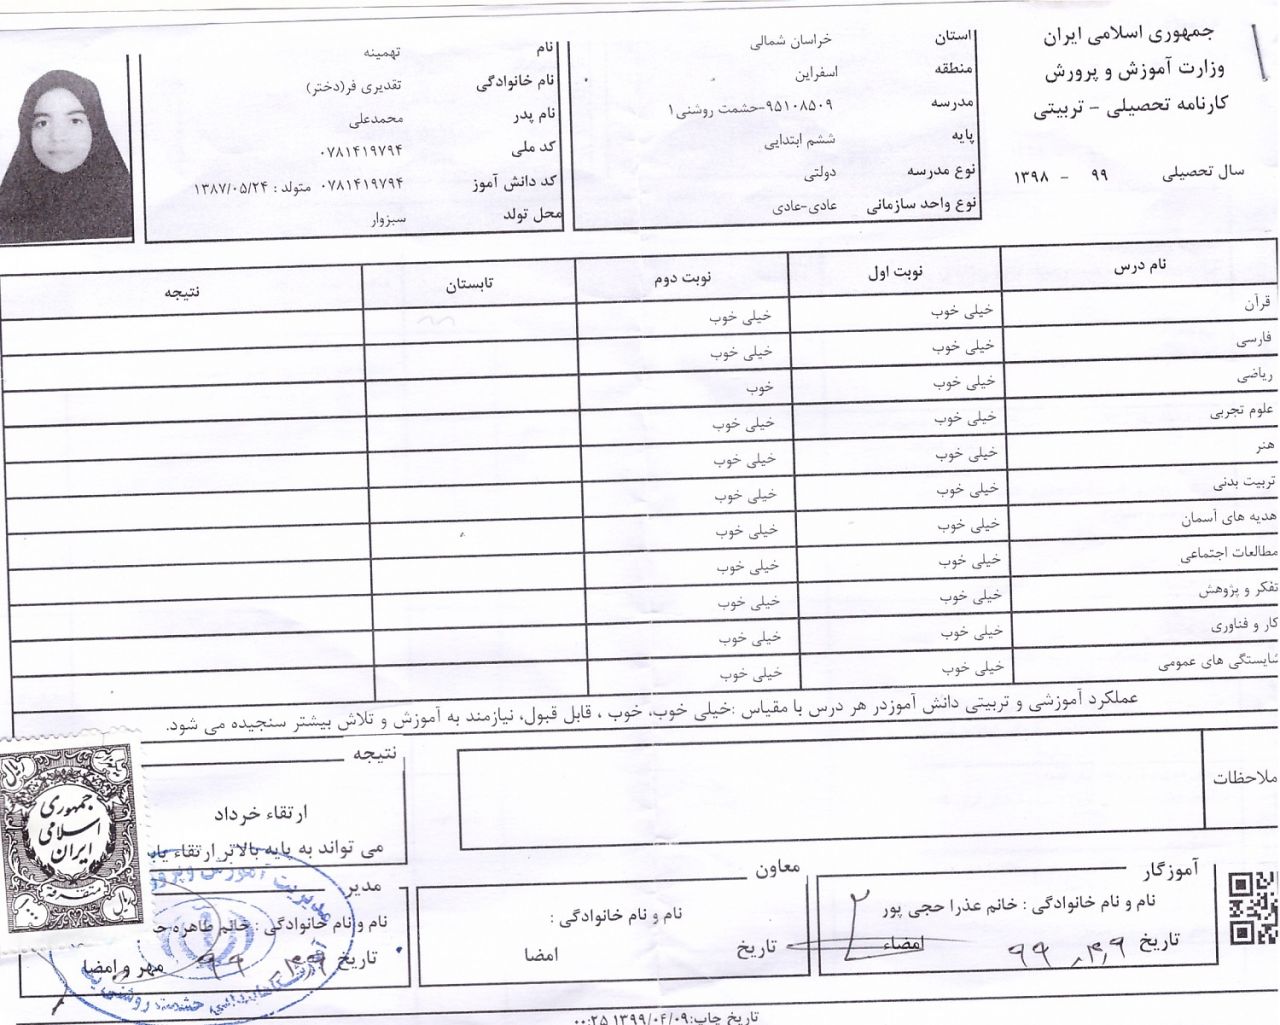 جمهوری اسلامی ایران
وزارت آموزش و پرورش
کارنامه تحصیلی - تربیتی
سال تحصیلی ۹۹ - ۱۳۹۸
استان خراسان شمالی
منطقه اسفراین
مدرسه ۹۵۱۰۸۵۰۹-حشمت روشنی۱
پایه ششم ابتدایی
نوع مدرسه دولتی
نوع واحد سازمانی عادی-عادی
نام تهمینه
نام خانوادگی تقدیری فر(دختر)
نام پدر محمدعلی
کد ملی ۰۷۸۱۴۱۹۷۹۴
کد دانش آموز ۰۷۸۱۴۱۹۷۹۴ متولد : ۱۳۸۷/۰۵/۲۴
محل تولد سبزوار
نام درس نوبت اول نوبت دوم تابستان نتیجه
قرآن خیلی خوب خیلی خوب
فارسی خیلی خوب خیلی خوب
ریاضی خیلی خوب خوب
علوم تجربی خیلی خوب خیلی خوب
هنر خیلی خوب خیلی خوب
تربیت بدنی خیلی خوب خیلی خوب
هدیه های آسمان خیلی خوب خیلی خوب
مطالعات اجتماعی خیلی خوب خیلی خوب
تفکر و پژوهش خیلی خوب خیلی خوب
کار و فناوری خیلی خوب خیلی خوب
شایستگی های عمومی خیلی خوب خیلی خوب
عملکرد آموزشی و تربیتی دانش آموزدر هر درس با مقیاس :خیلی خوب، خوب ، قابل قبول، نیازمند به آموزش و تلاش بیشتر سنجیده می شود.
ملاحظات
نتیجه
ارتقاء خرداد
می تواند به پایه بالاتر ارتقاء یابد
آموزگار
نام و نام خانوادگی : خانم عذرا حجی پور
تاریخ ۹۹,۴,۹ امضاء
معاون
نام و نام خانوادگی :
تاریخ امضا
مدیر
نام و نام خانوادگی : خانم طاهره
تاریخ ۹۹,۴,۹ مهر و امضا
جمهوری
اسلامی
ایران
متفرقه
ریال
مدیریت آموزش و پرورش
حشمت روشنی
تاریخ چاپ:۱۳۹۹/۰۴/۰۹ ۰۰:۲۵